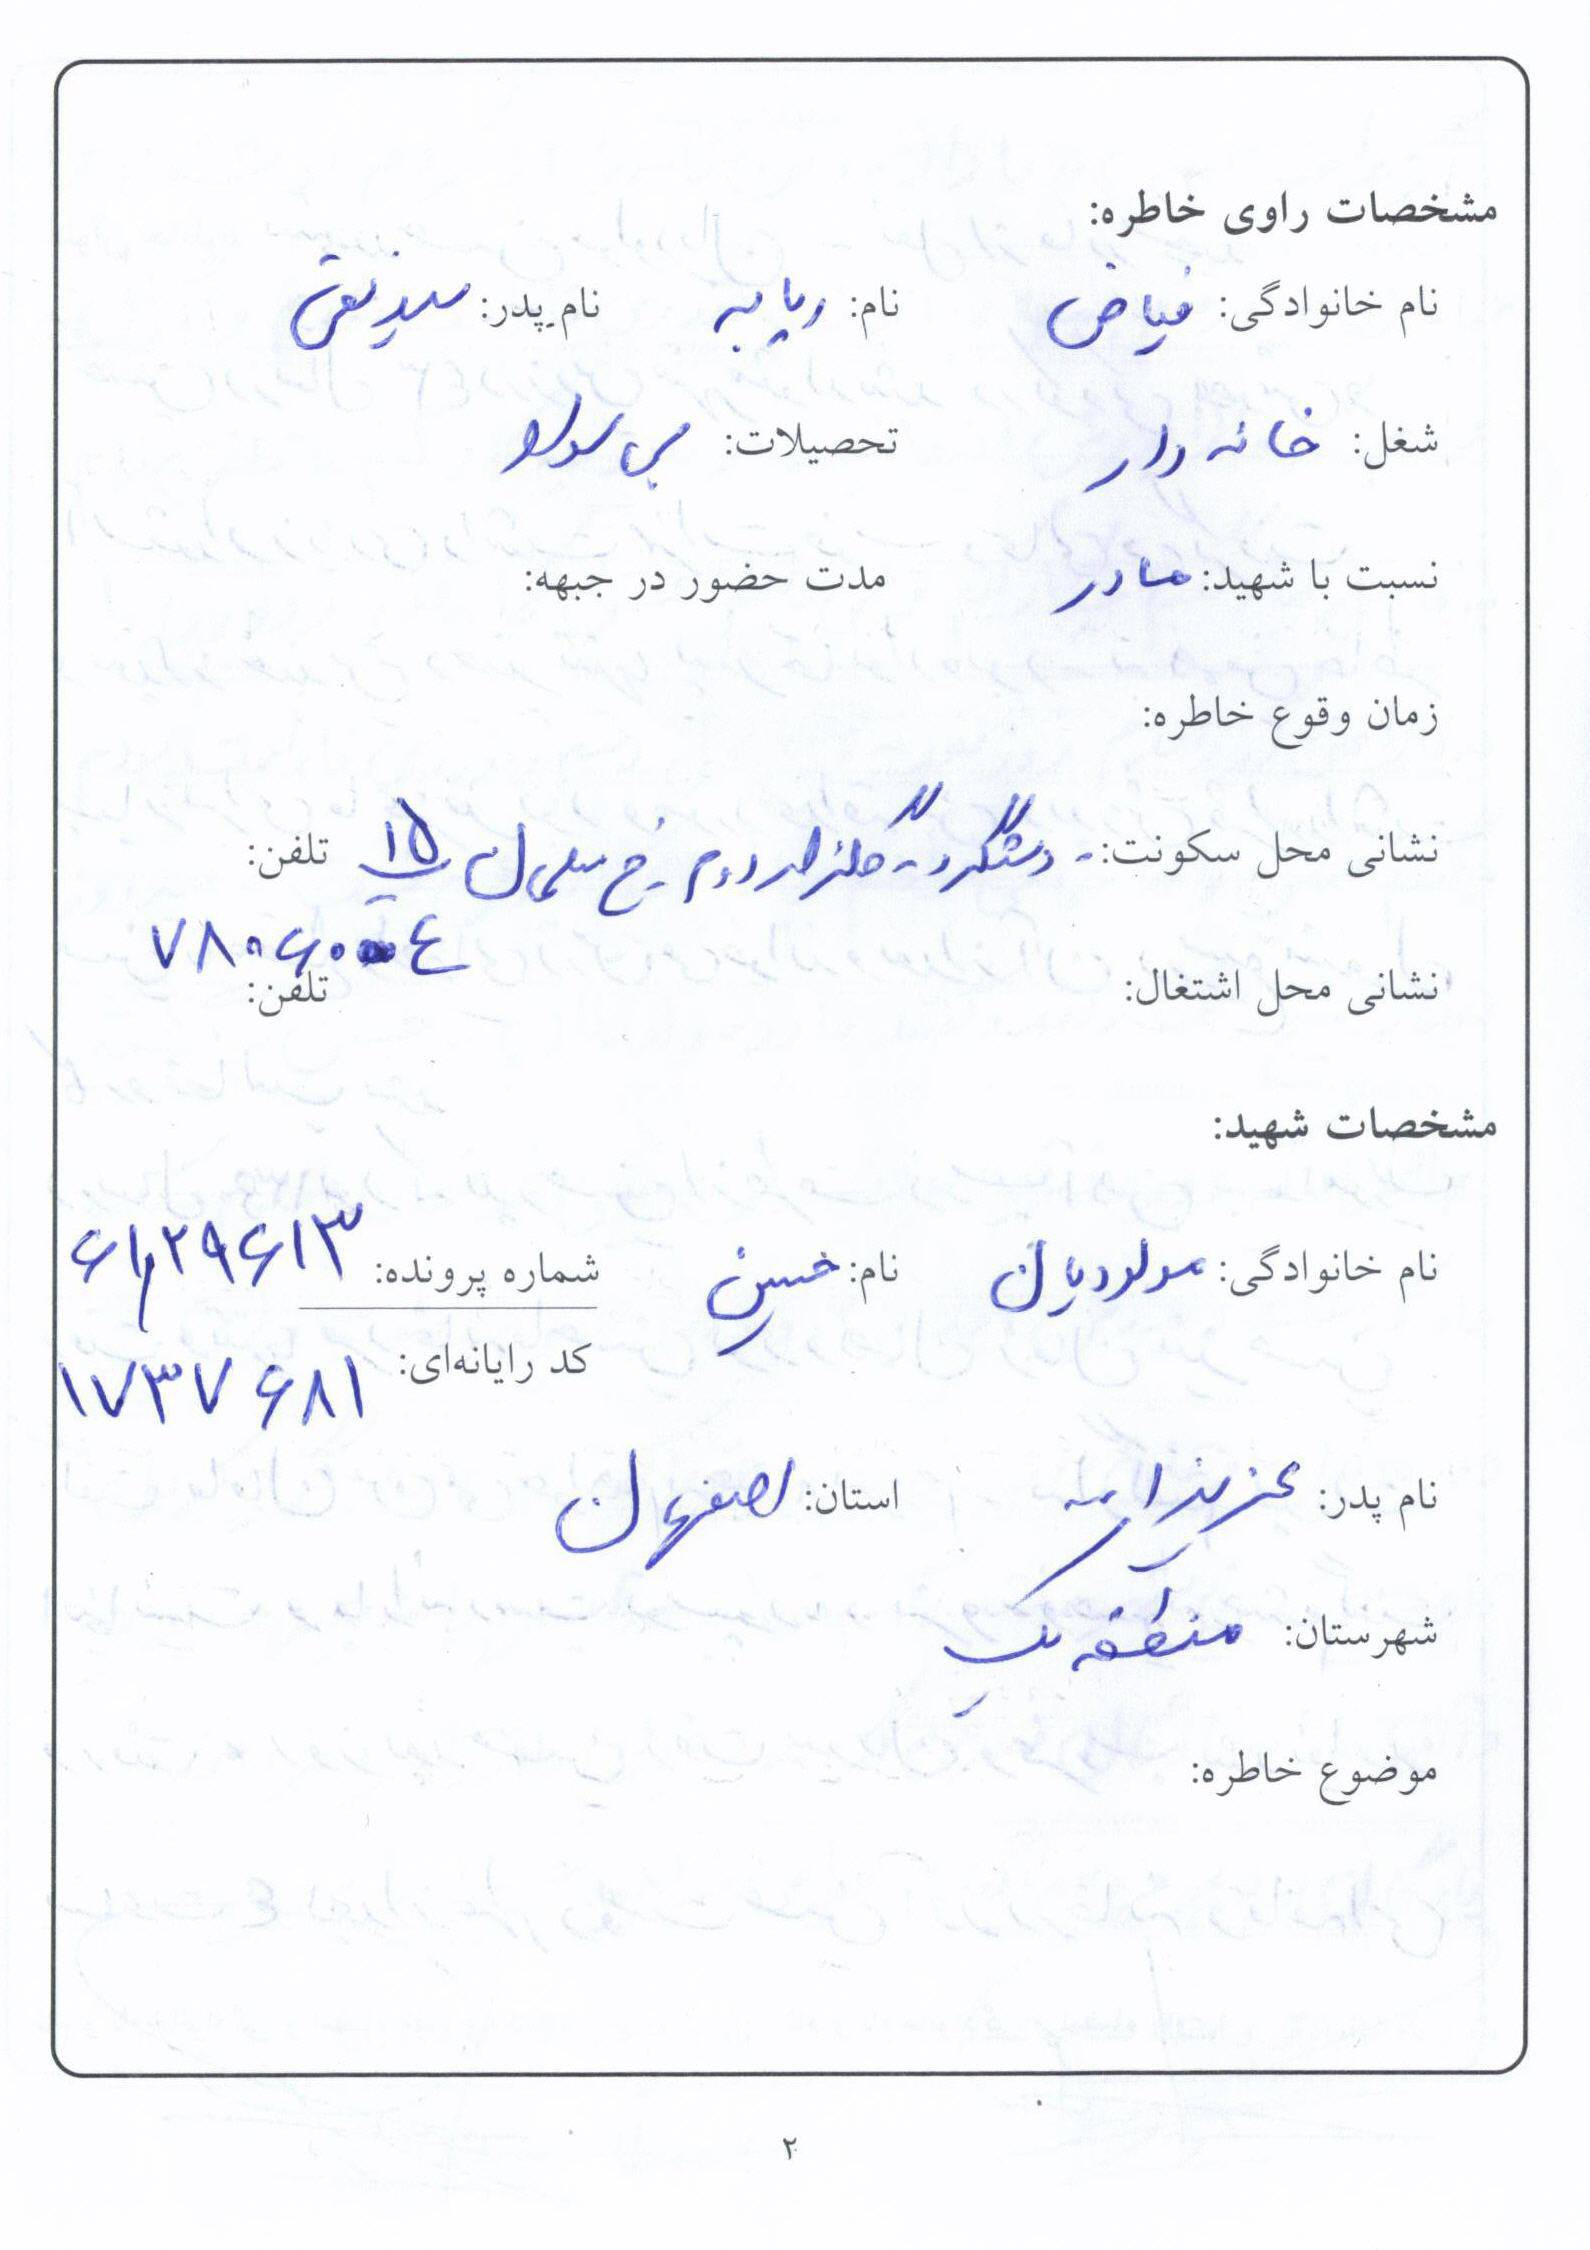 مشخصات راوی خاطره:
نام خانوادگی: فیاض نام: ربابه نام پدر: سید تقی
شغل: خانه دار تحصیلات: بی سواد
نسبت با شهید: مادر مدت حضور در جبهه:
زمان وقوع خاطره:
نشانی محل سکونت: - دستگرد - گلزار دوم - خ ۱۵ تلفن:
نشانی محل اشتغال: تلفن:
مشخصات شهید:
نام خانوادگی: مولودیان نام: حسین شماره پرونده: ۶۱۲۹۶۱۳
کد رایانه‌ای: ۱۷۳۷۶۸۱
نام پدر: عزیزاله استان: اصفهان
شهرستان: منطقه یک
موضوع خاطره:
۲